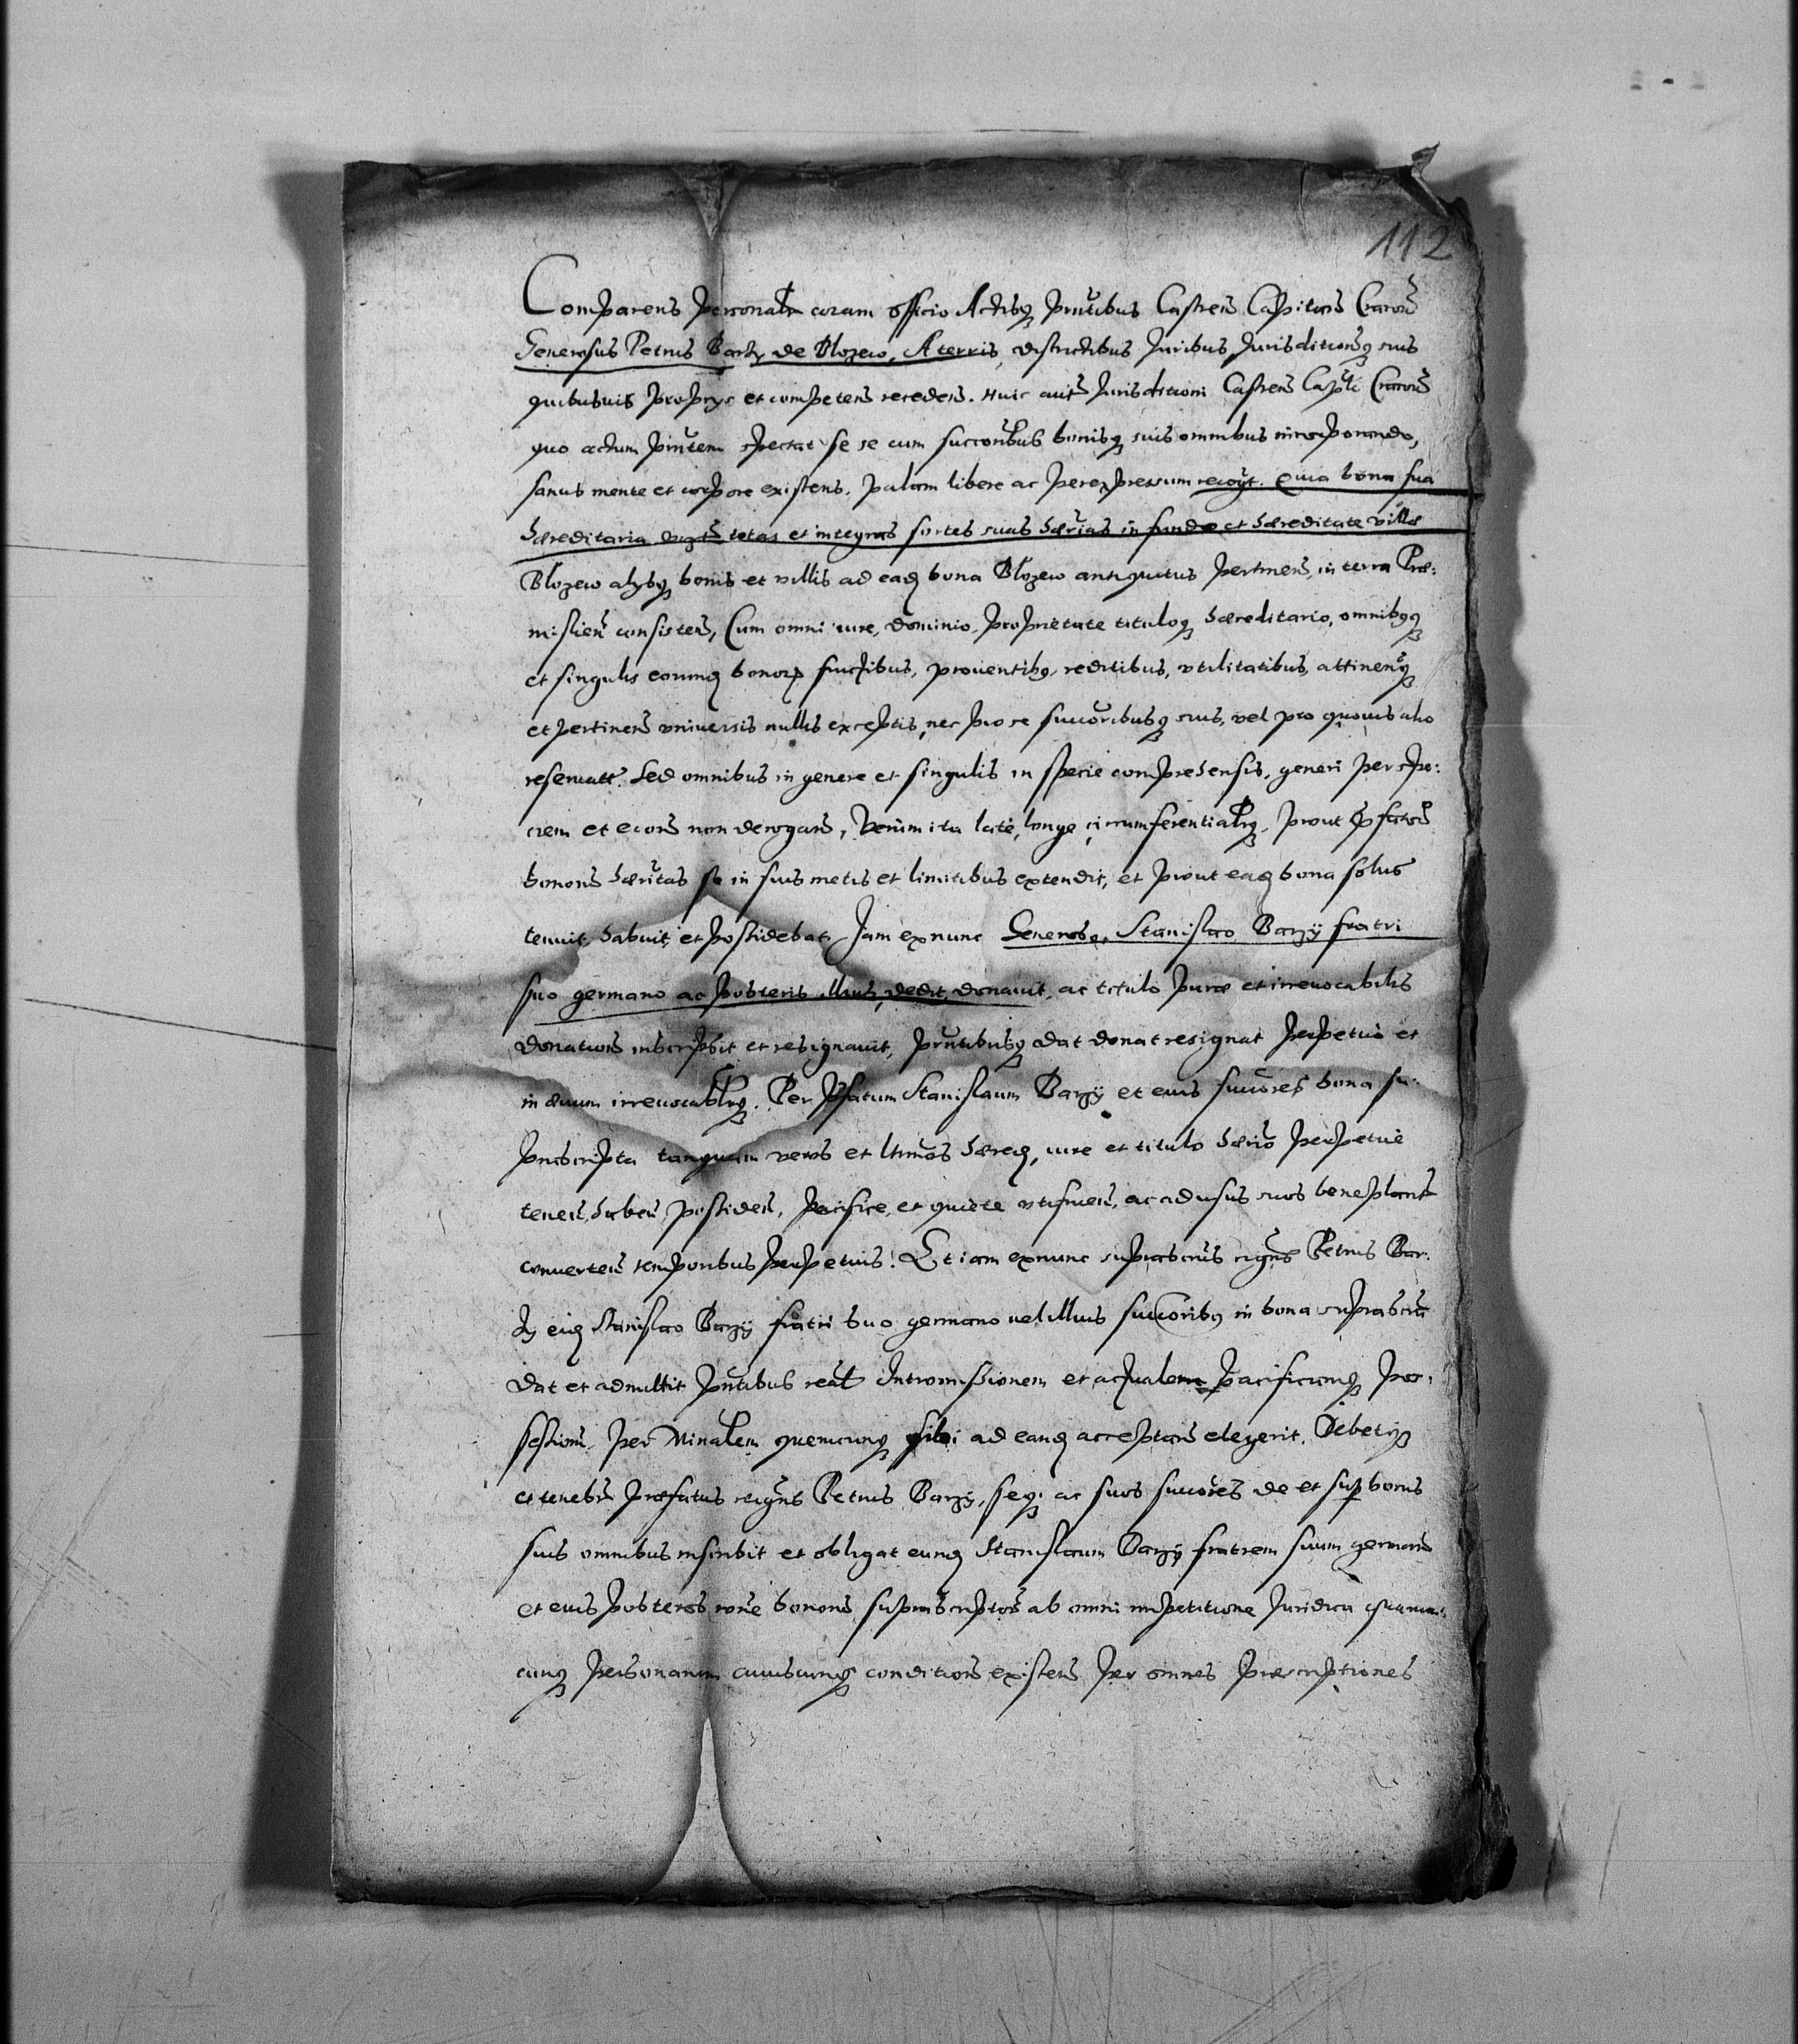 112
Comparens personalr coram officio Actisq prntibus Castren Capitan Cracou
Generosus Petrus Barzy de Blozew, A terris, districtibus Juribus Jurisditionq suis
quibusuis proprys et competen receden. Huic autē Jurisditioni Castren Capli Cracou
quo actum prntem spectat se se cum succoribus bonisq suis omnibus incorporando,
sanus mente et corpore existens. palam libere ac per expressum recogt. Quia bona sua
Hæreditaria totas et integras sortes suas hærias in fundo et hæreditate villæ
Blozew alysq bonis et villis ad eaq bona Blozew antiquitus pertinen, in terra Præ:
mislien consisten, Cum omni iure, dominio, proprietate tituloq hæreditario, omnibqq
et singulis eorunq bonorz fructibus, prouentibq, reditibus, vtilitatibus, attinenq
et pertinen vniuersis nullis exceptis, nec pro se succoribusq suis, vel pro quouis alio
reseruatt. Sed omnibus in genere et singulis in specie comprehensis, generi per spe:
ciem et econ non derogan, Verum ita late, longe circumferentialrq, prout pfator
bonor hæritas se in suis metis et limitibus extendit, et prout eaq bona solus
tenuit, habuit, et possidebat. Jam exnunc Generoso, Stanislao Barzÿ fratri
suo germano ac posteris illius, dedit, donauit, ac titulo puræ et irreuocabilis
donation inscripsit et resignauit, prntibusq dat donat resignat perpetuo et
in æuum irreuocablrq. Per pfatum Stanislaum Barzÿ et eius succores bona su:
prascripta tanquam veros et ltimos hæreq, iure et titulo hærio perpetue
tenen, haben, possiden, pacifice, et quiete vtifruen, ac ad usus suos beneplacit
conuerten temporibus perpetuis. Et iam exnunc suprascrus Petrus Bar:
zÿ eiq Stanislao Barzÿ fratri suo germano uel illius succoribq in bona suprascrta
dat et admittit prntibus realē Intromissionem et actualem pacificamq pos:
session, per Minalem quemcunq sibi ad eanq acceptan elegerit. Debetq
et tenebr præfatus Petrus Barzÿ, seq. ac suos succores de et sup bonis
suis omnibus inscribit et obligat eunq Stanislaum Barzÿ fratrem suum germanū
et eius posteros rone bonor suprascriptor ab omni impetitione Juridica
cunq personarum cuiuscunq condition existen per omnes præscriptiones